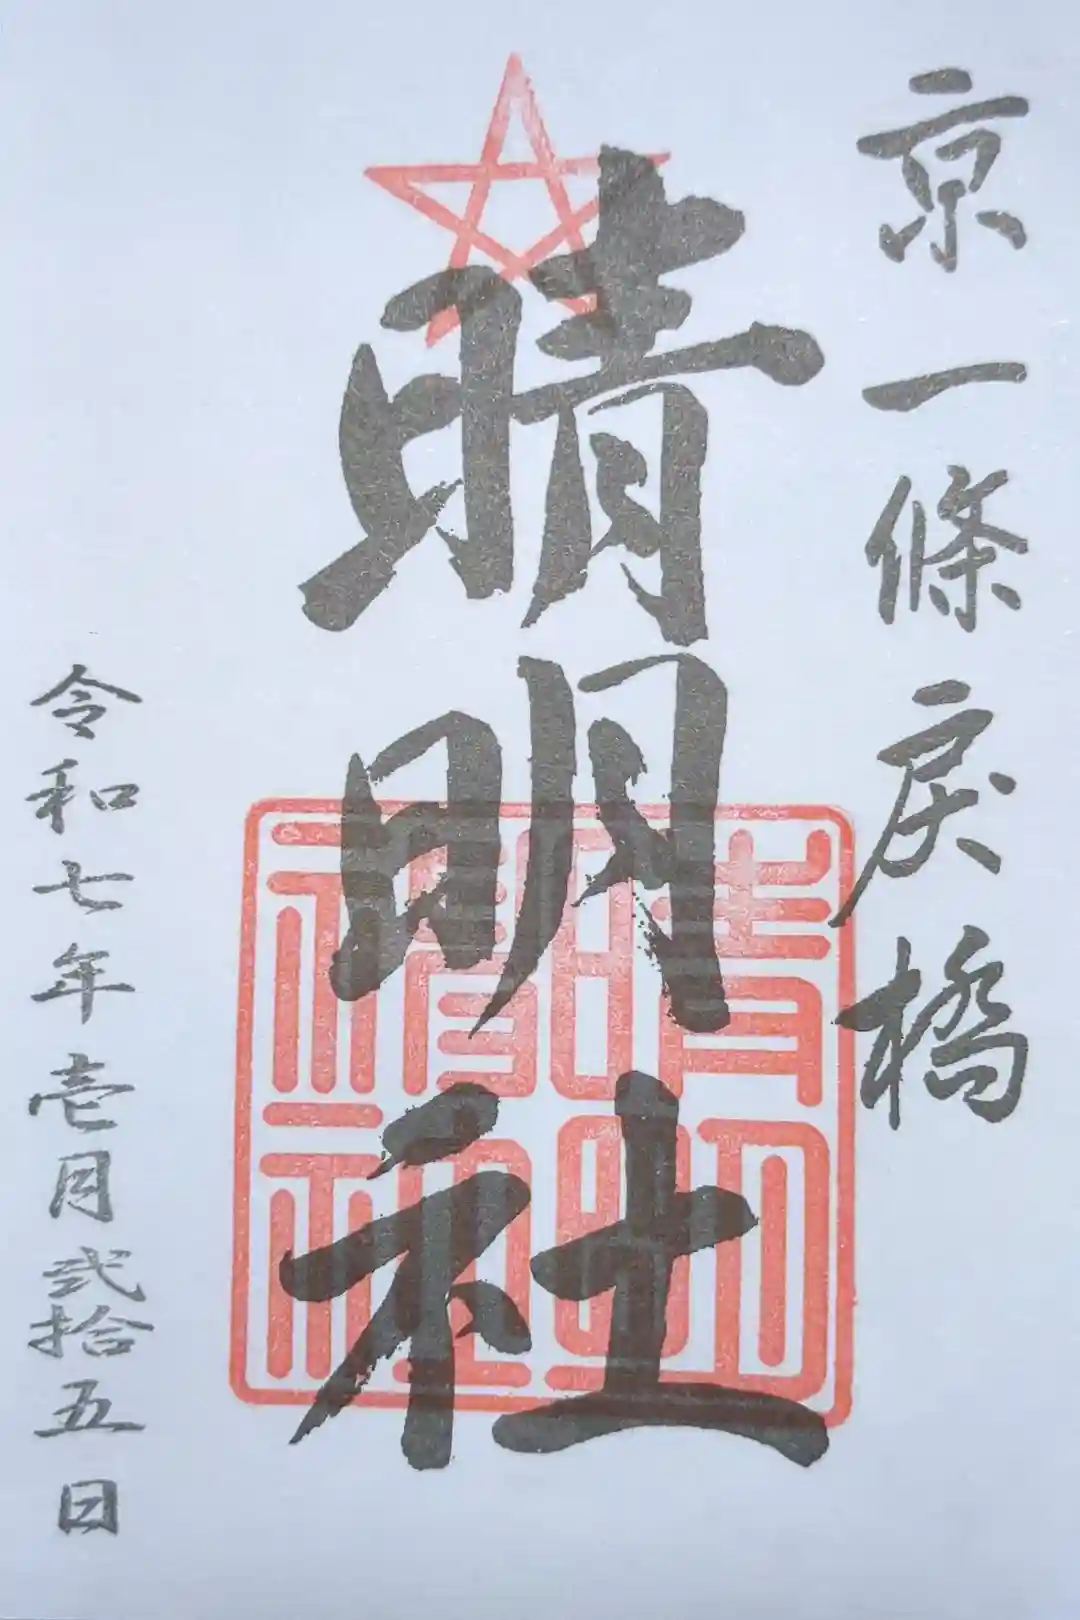 京一條戻橋
晴明社
晴明神社
令和七年壱月弐拾五日